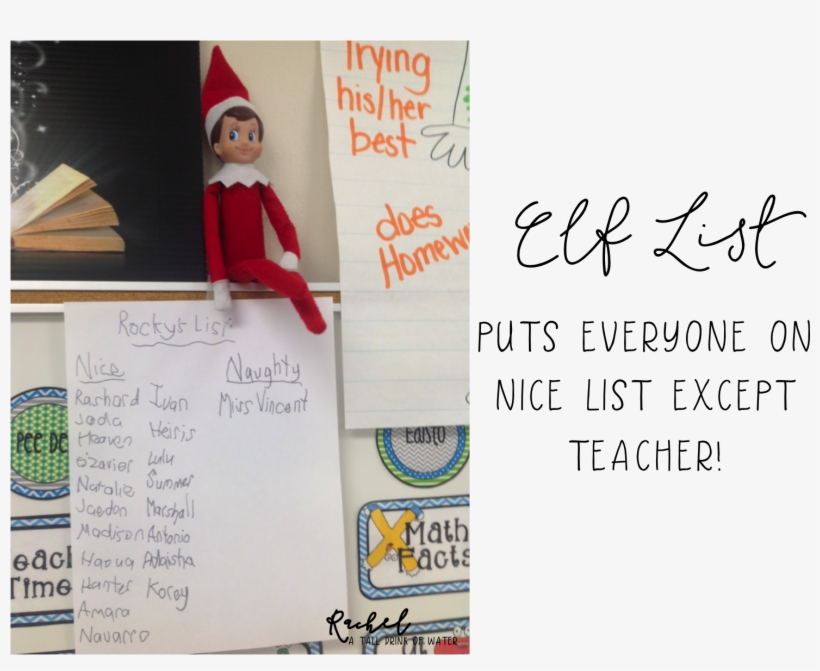 Trying
his/her
best
does
Homew
Rocky's List
Nice
Naughty
Rashard Ivan
Miss Vincent
Jada
Heaven Heiris
O'zavier Lulu
Natalie Summer
Jaedon Marshall
Madison Antonio
Hanter Korey
Amara
Navarro
PEE DE
EDISTO
Math
Facts
each
Time
Elf List
PUTS EVERYONE ON
NICE LIST EXCEPT
TEACHER!
Rachel
A TALL DRINK OF WATER